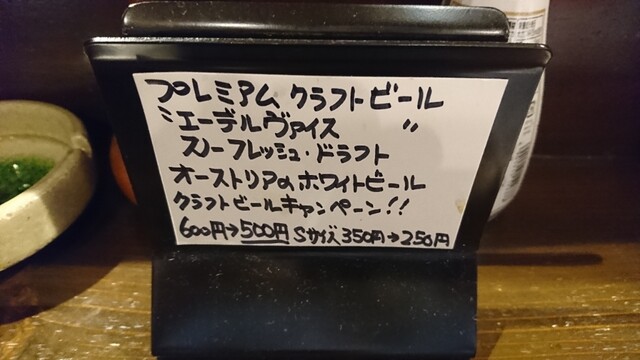 プレミアムクラフトビール
ミエーデルヴァイス 〃
スノーフレッシュ・ドラフト
オーストリアのホワイトビール
クラフトビールキャンペーン!!
600円→500円 Sサイズ 350円→250円